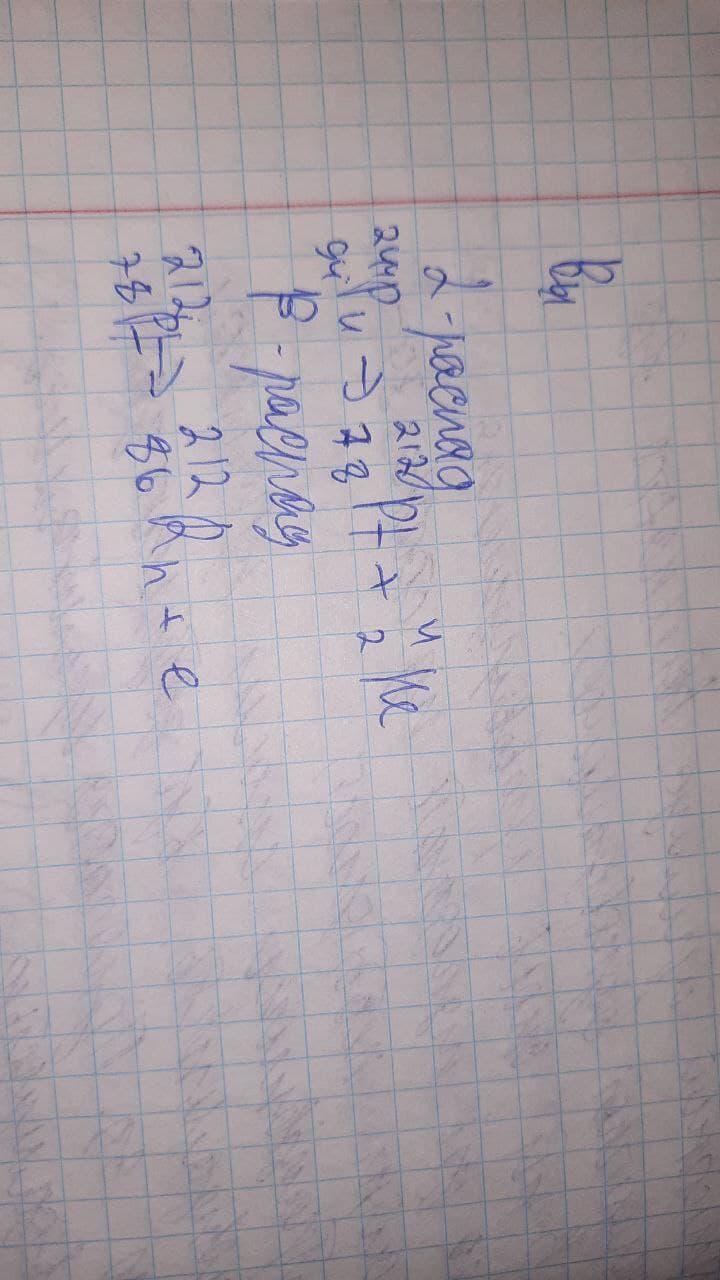 В4
α-распад
244 94 Pu → 212 78 Pt + 4 2 He
β-распад
212 78 Pt → 212 86 Rn + e